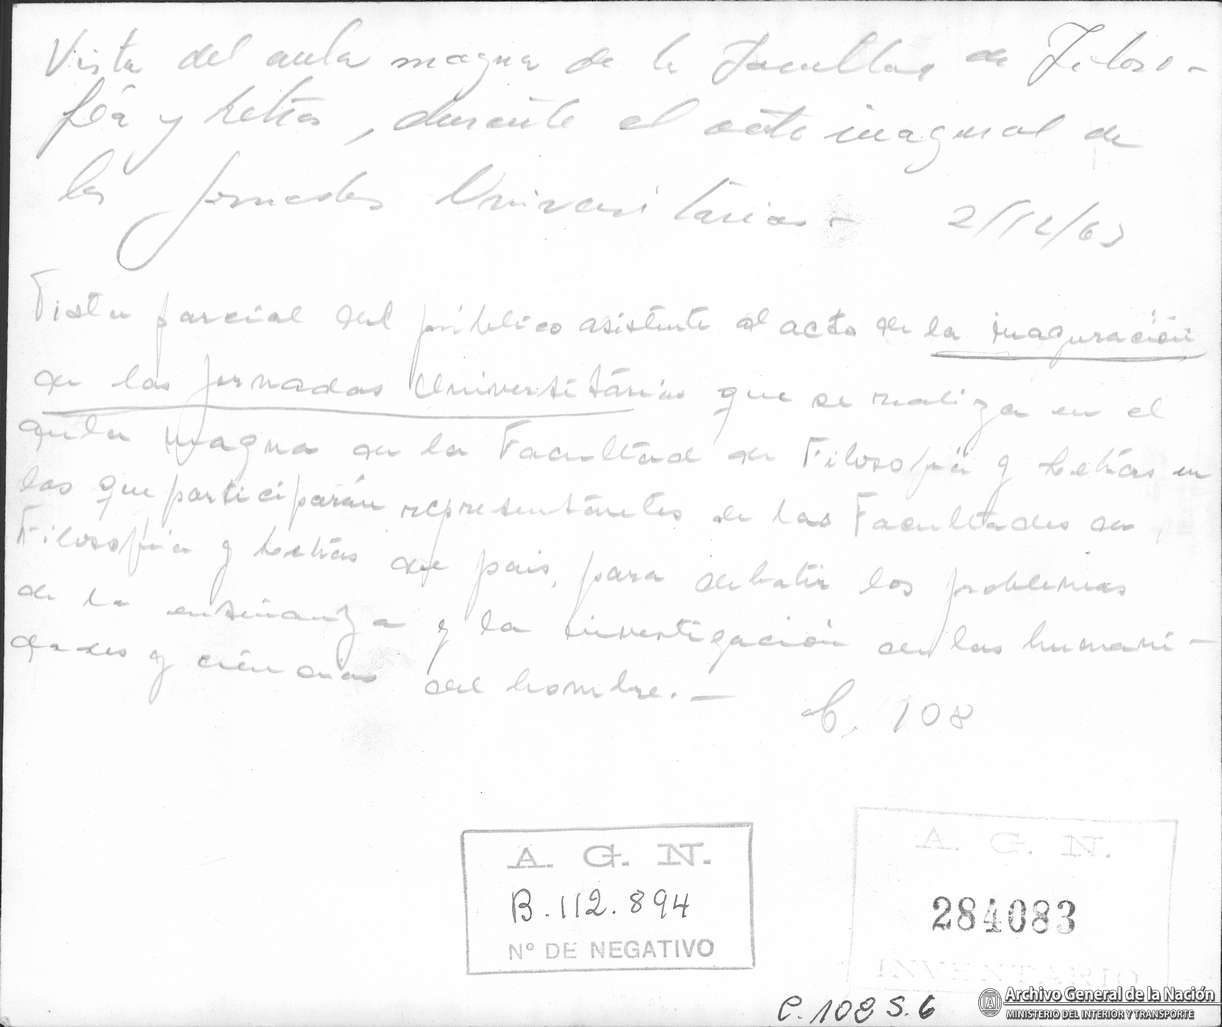 Vista del aula magna de la Facultad de Filoso-
fía y Letras, durante el acto inagural de
las Jornadas Universitarias - 2/12/63
Vista parcial del público asistente al acto de la inaguración
de las Jornadas Universitárias que se realiza en el
aula magna de la Facultad de Filosofía y Letras en
las que participarán representantes de las Facultades de
Filosofía y Letras del pais, para debatir los problemas
de la enseñanza y la investigación en las humani-
dades y ciencias del hombre. -
C. 108
A. G. N.
B.112.894
Nº DE NEGATIVO
A. G. N.
284083
INVENTARIO
C.108 S.6
Archivo General de la Nación
MINISTERIO DEL INTERIOR Y TRANSPORTE